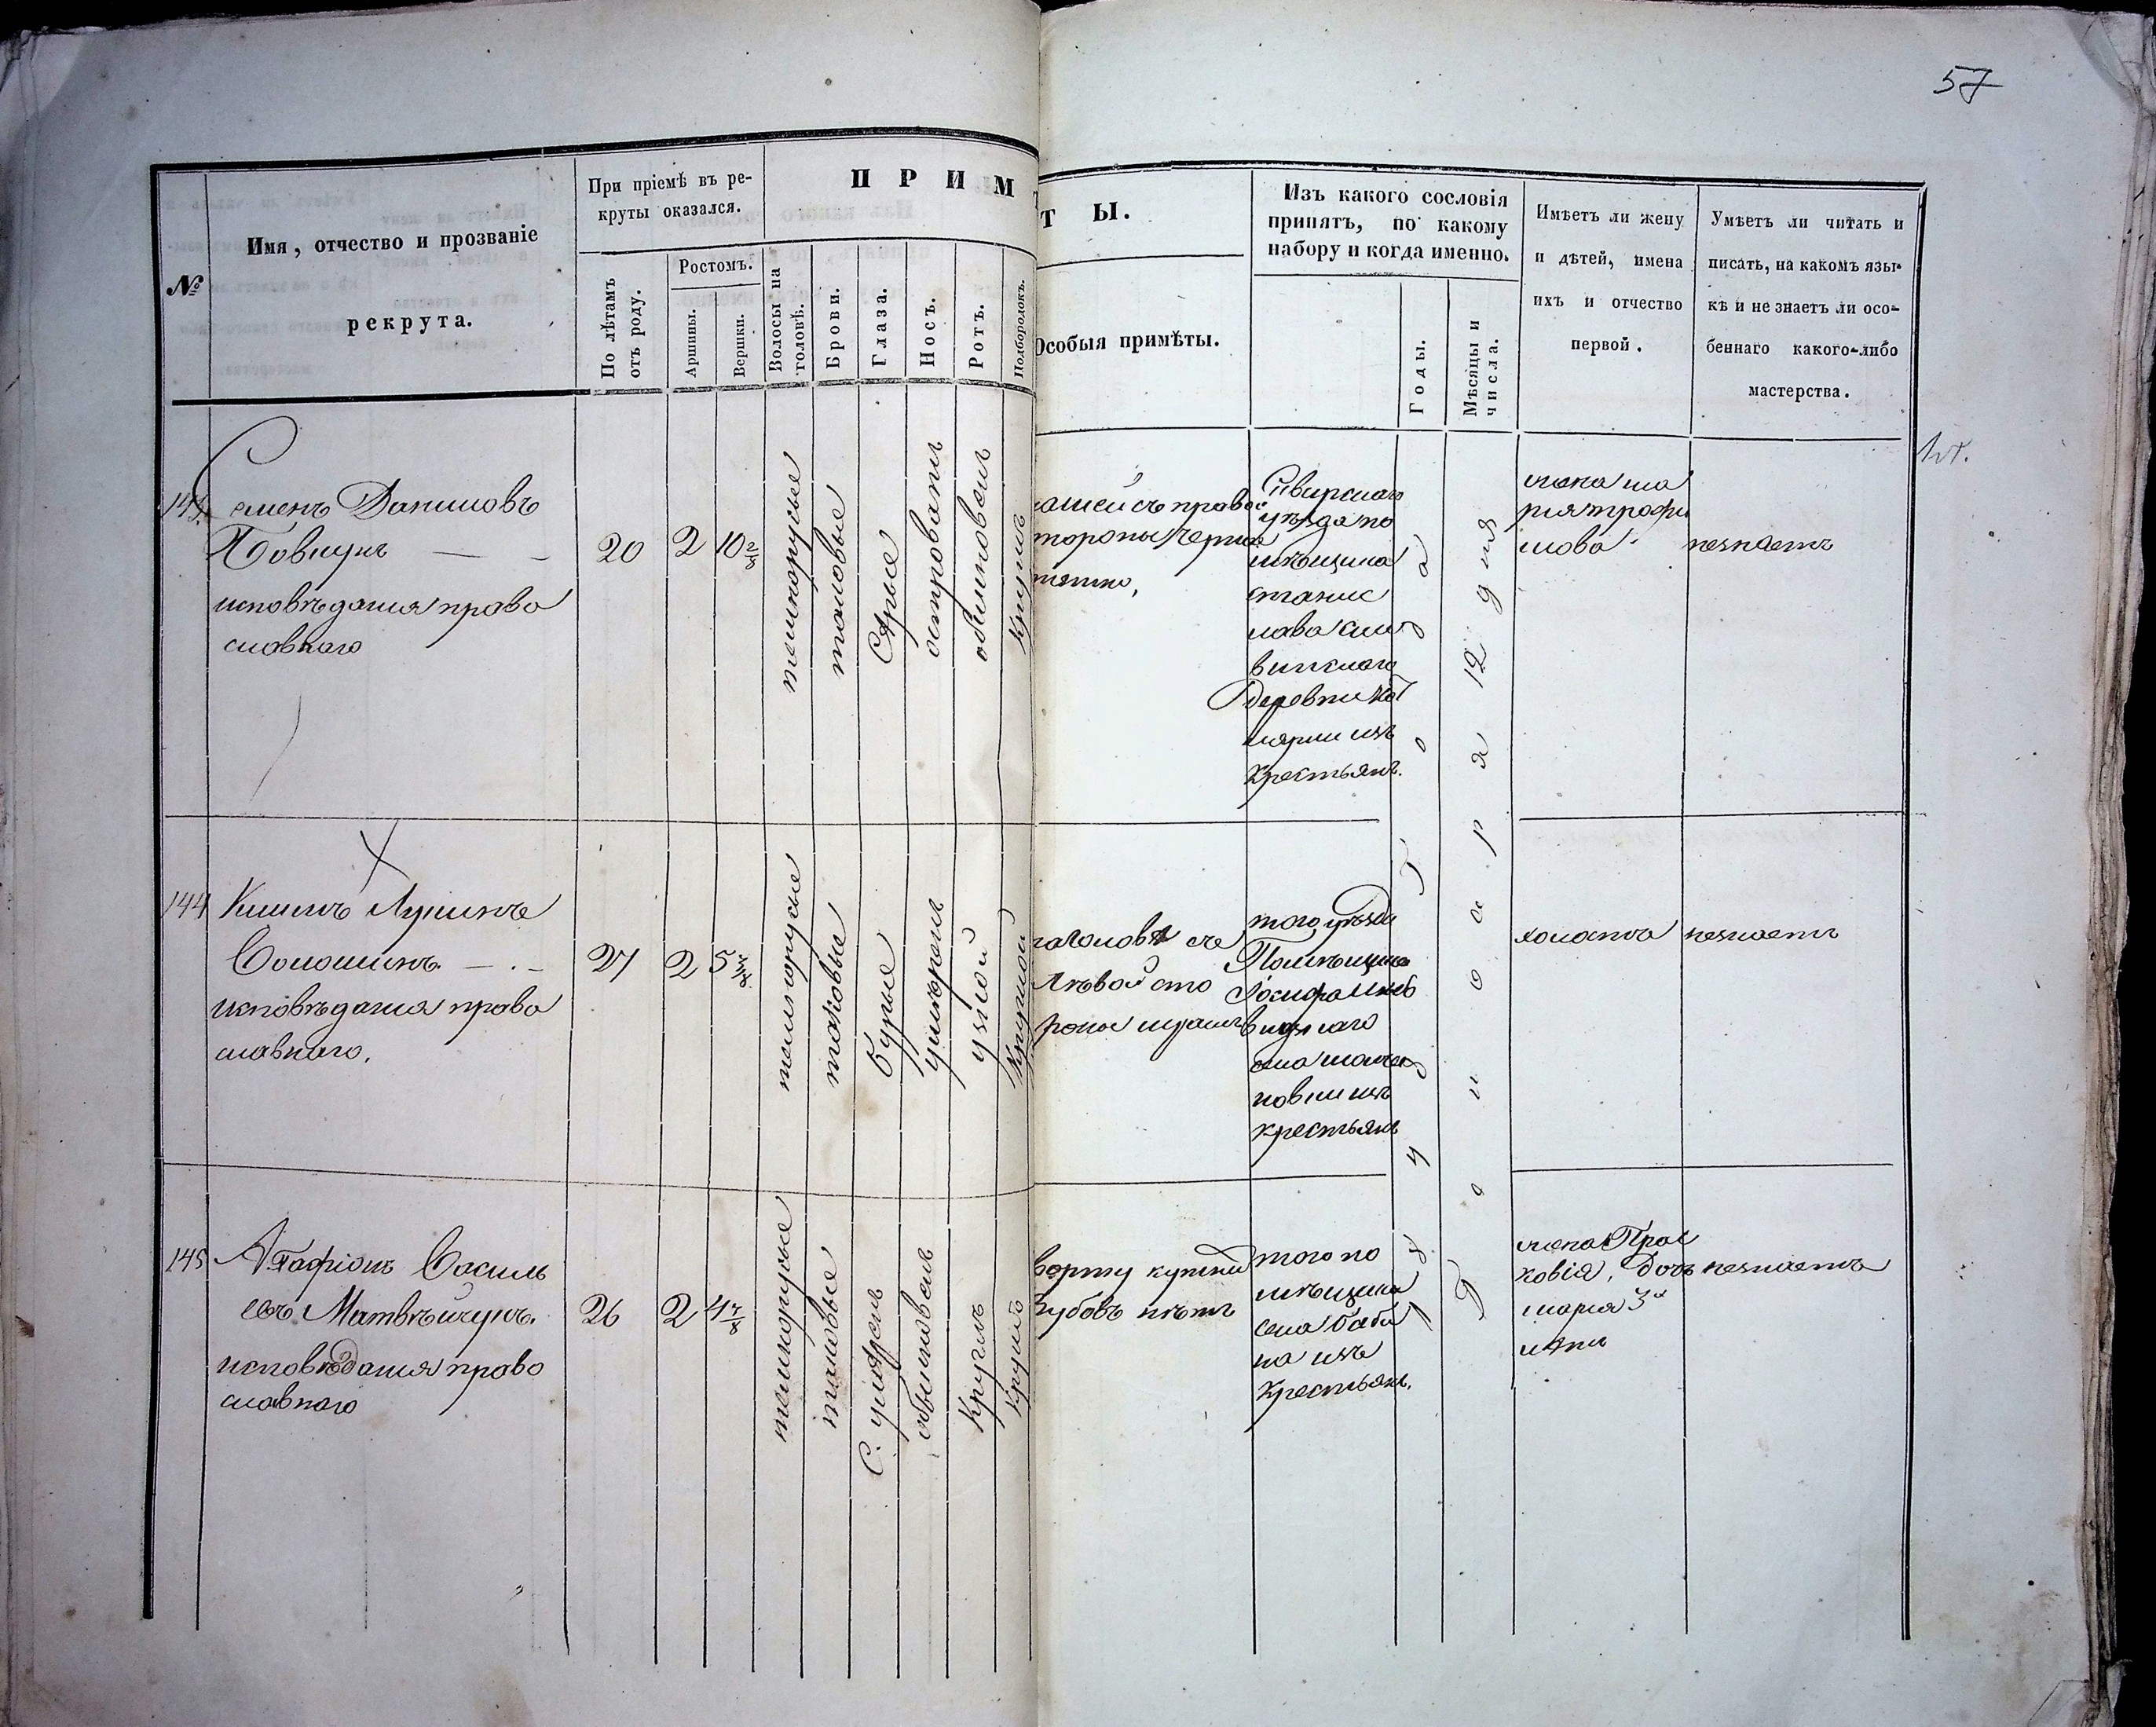 57
№
Имя, отчество и прозваніе
рекрута.
При пріемѣ въ ре-
круты оказался.
По лѣтамъ
отъ роду.
Ростомъ.
Аршины.
Вершки.
ПРИМ
Волосы на
головѣ.
Брови.
Глаза.
Носъ.
Ротъ.
Подбородокъ.
ТЫ.
Особыя примѣты.
Изъ какого сословія
принятъ, по какому
набору и когда именно.
Годы.
Мѣсяцы и
числа.
Имѣетъ ли жену
и дѣтей, имена
ихъ и отчество
первой.
Умѣетъ ли читать и
писать, на какомъ язы-
кѣ и не знаетъ ли осо-
беннаго какого-либо
мастерства.
143
Семенъ Даниловъ
Бовшукъ
исповѣданія право
славнаго
20
2
10 2/8
темнорусые
таковые
Сѣрые
островатъ
обыкновенъ
Круглъ
шеи съ правой
стороны черное
пятно,
уѣзда по
мѣщика
станис
лава
деревни
изъ
Крестьянъ.
жена ма
рія трофи
мова
незнаетъ
144
Лукинъ
Волошинъ.
исповѣданія право
славнаго.
27
2
5
темнорусые
таковые
Бурые
умѣренъ
узкой
Круглой
на головѣ съ
Лѣвой сто
роны шрамъ
того уѣзда
Помѣщика
села
изъ
крестьянъ
холостъ
незнаетъ
145
Агафіонъ Василь
евъ Матвѣйчукъ.
исповѣданія право
славнаго
26
2
4 4/8
темнорусые
таковые
обыкновенъ
Круглъ
Круглъ
Зубовъ нѣтъ
того по
мѣщика
села Баби
на изъ
Крестьянъ.
жена Прас
ковія, дочь
марія 3х
лѣтъ
незнаетъ
Декабря 12 дня